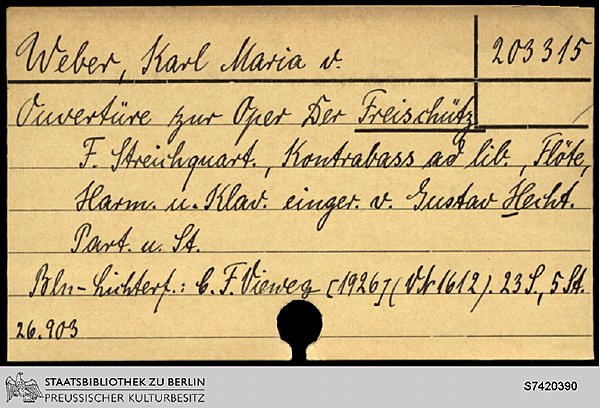 Weber, Karl Maria v.
203315
Ouvertüre zur Oper Der Freischütz
F. Streichquart., Kontrabass ad lib., Flöte,
Harm. u. Klav. einger. v. Gustav Hecht.
Part. u. St.
Bln-Lichterf.: C. F. Vieweg [1926] (V№ 1612). 23 S., 5 St.
26.903
STAATSBIBLIOTHEK ZU BERLIN
PREUSSISCHER KULTURBESITZ
S7420390